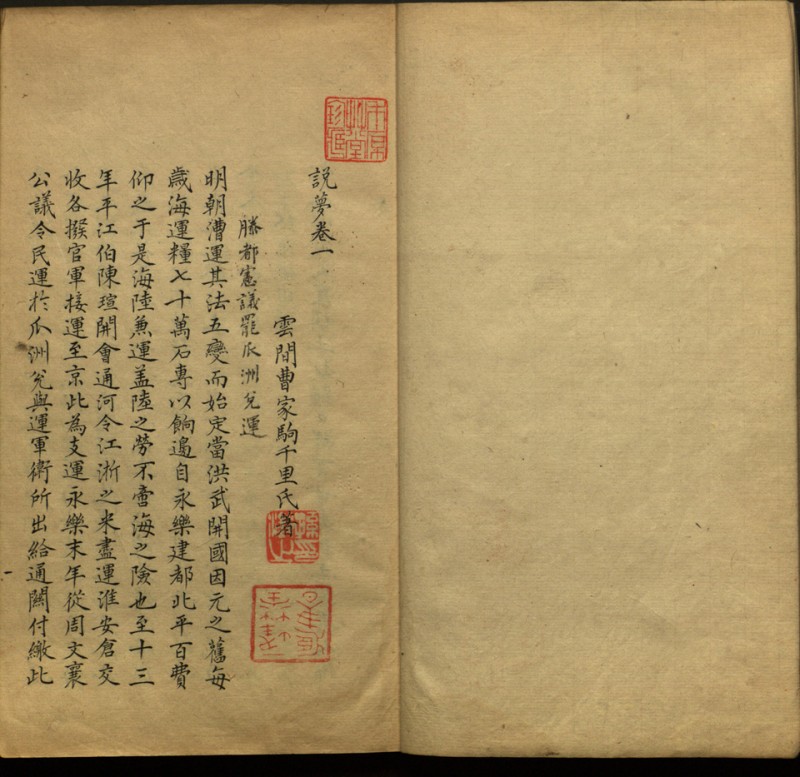 說夢卷一
雲間曹家駒千里氏著
滕都憲議罷瓜洲兌運
明朝漕運其法五變而始定當洪武開國因元之舊每
歲海運糧七十萬石專以餉邊自永樂建都北平百費
仰之于是海陸兼運盖陸之勞不啻海之險也至十三
年平江伯陳瑄開會通河令江浙之米盡運淮安倉交
收各撥官軍接運至京此為支運永樂末年從周文襄
公議令民運於瓜洲兌與運軍衛所出給通關付繳此